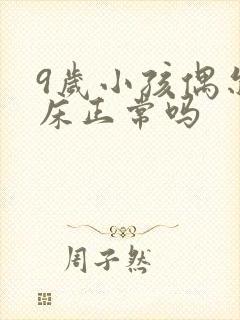 9歲小孩偶尔
床正常吗
周子然